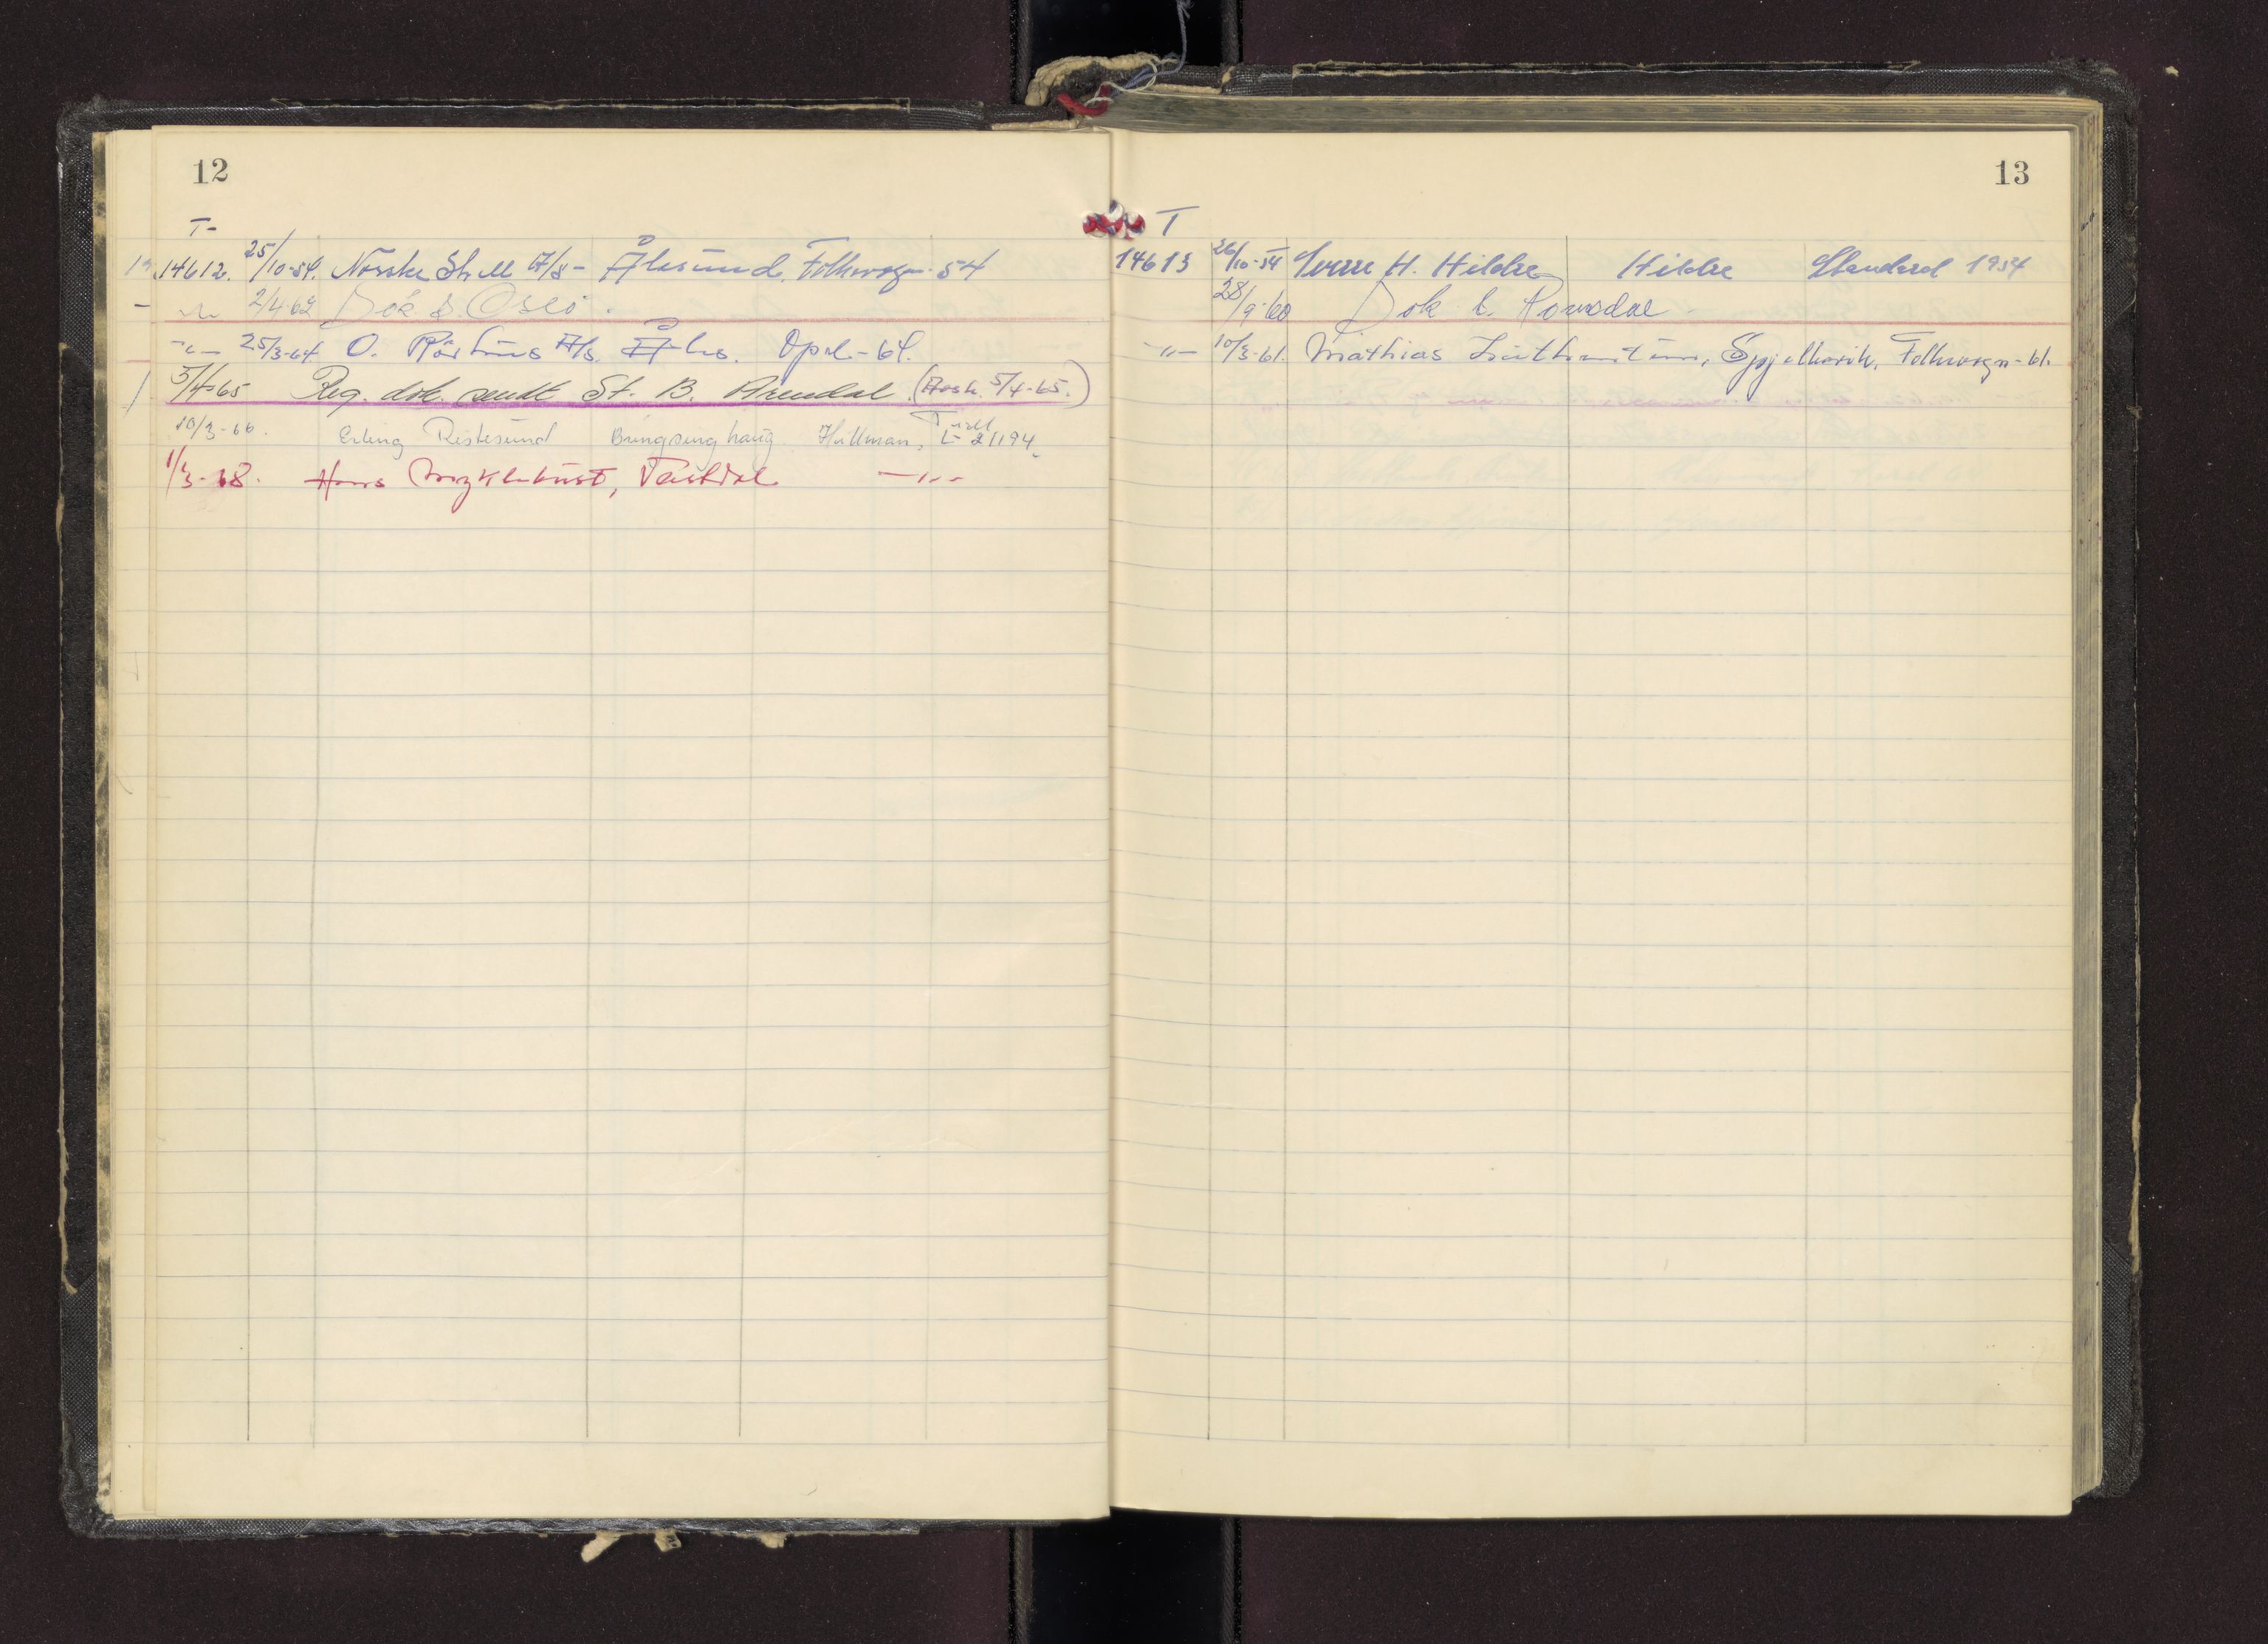 12
T-
14612. 25/10-54. Norske Shell A/S - Ålesund. Folkevogn. 54
-"- 2/4-62 Dok. t. Oslo.
-"- 25/3-64. O. A/s. Åles. Opel - 64.
5/4-65 Reg. dok. sendt St. B. Arendal. (Avsk. 5/4-65.)
10/3-66. Erling Ristesund Hillman, L- 21194.
1/3-68. Hans Myklebust, -"-
13
T
14613 26/10-54 Sverre H. Hildre Hildre Standard 1954
28/9-60 Dok t. Romsdal
-"- 10/3-61. Mathias Spjelkavik. Folkevogn - 61.